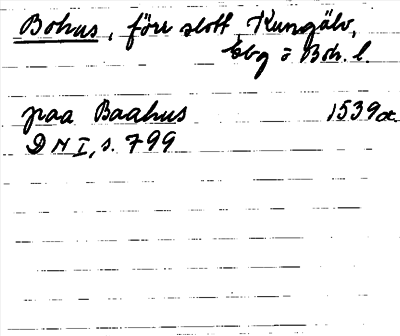 Bohus, förr slott, Kungälv,
Gbg o Boh. l.
paa Baahus 1539 a.
DN I, s. 799